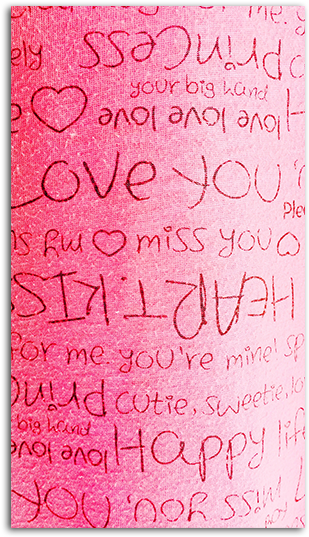 for me.
ely princess
your big hand
love love love H
Love you
Ple
my ♡ miss you ♡
HEART. KIS
for me you're mine! sp
princ cutie, sweetie, lo
big hand
love love Happy life
miss you, you